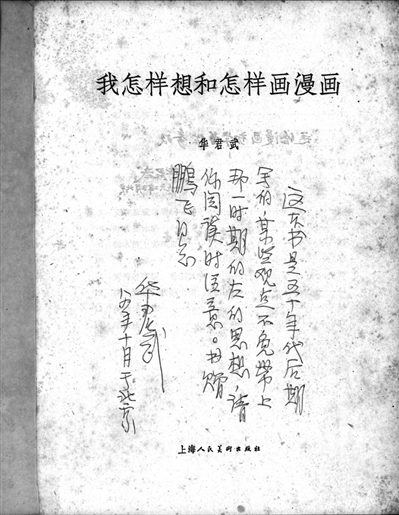 我怎样想和怎样画漫画
华君武
这本书是五十年代后期
写的，某些观点不免带上
那一时期的左的思想，请
你阅读时注意。书赠
鹏飞同志
华君武
年十月于北京
上海人民美术出版社